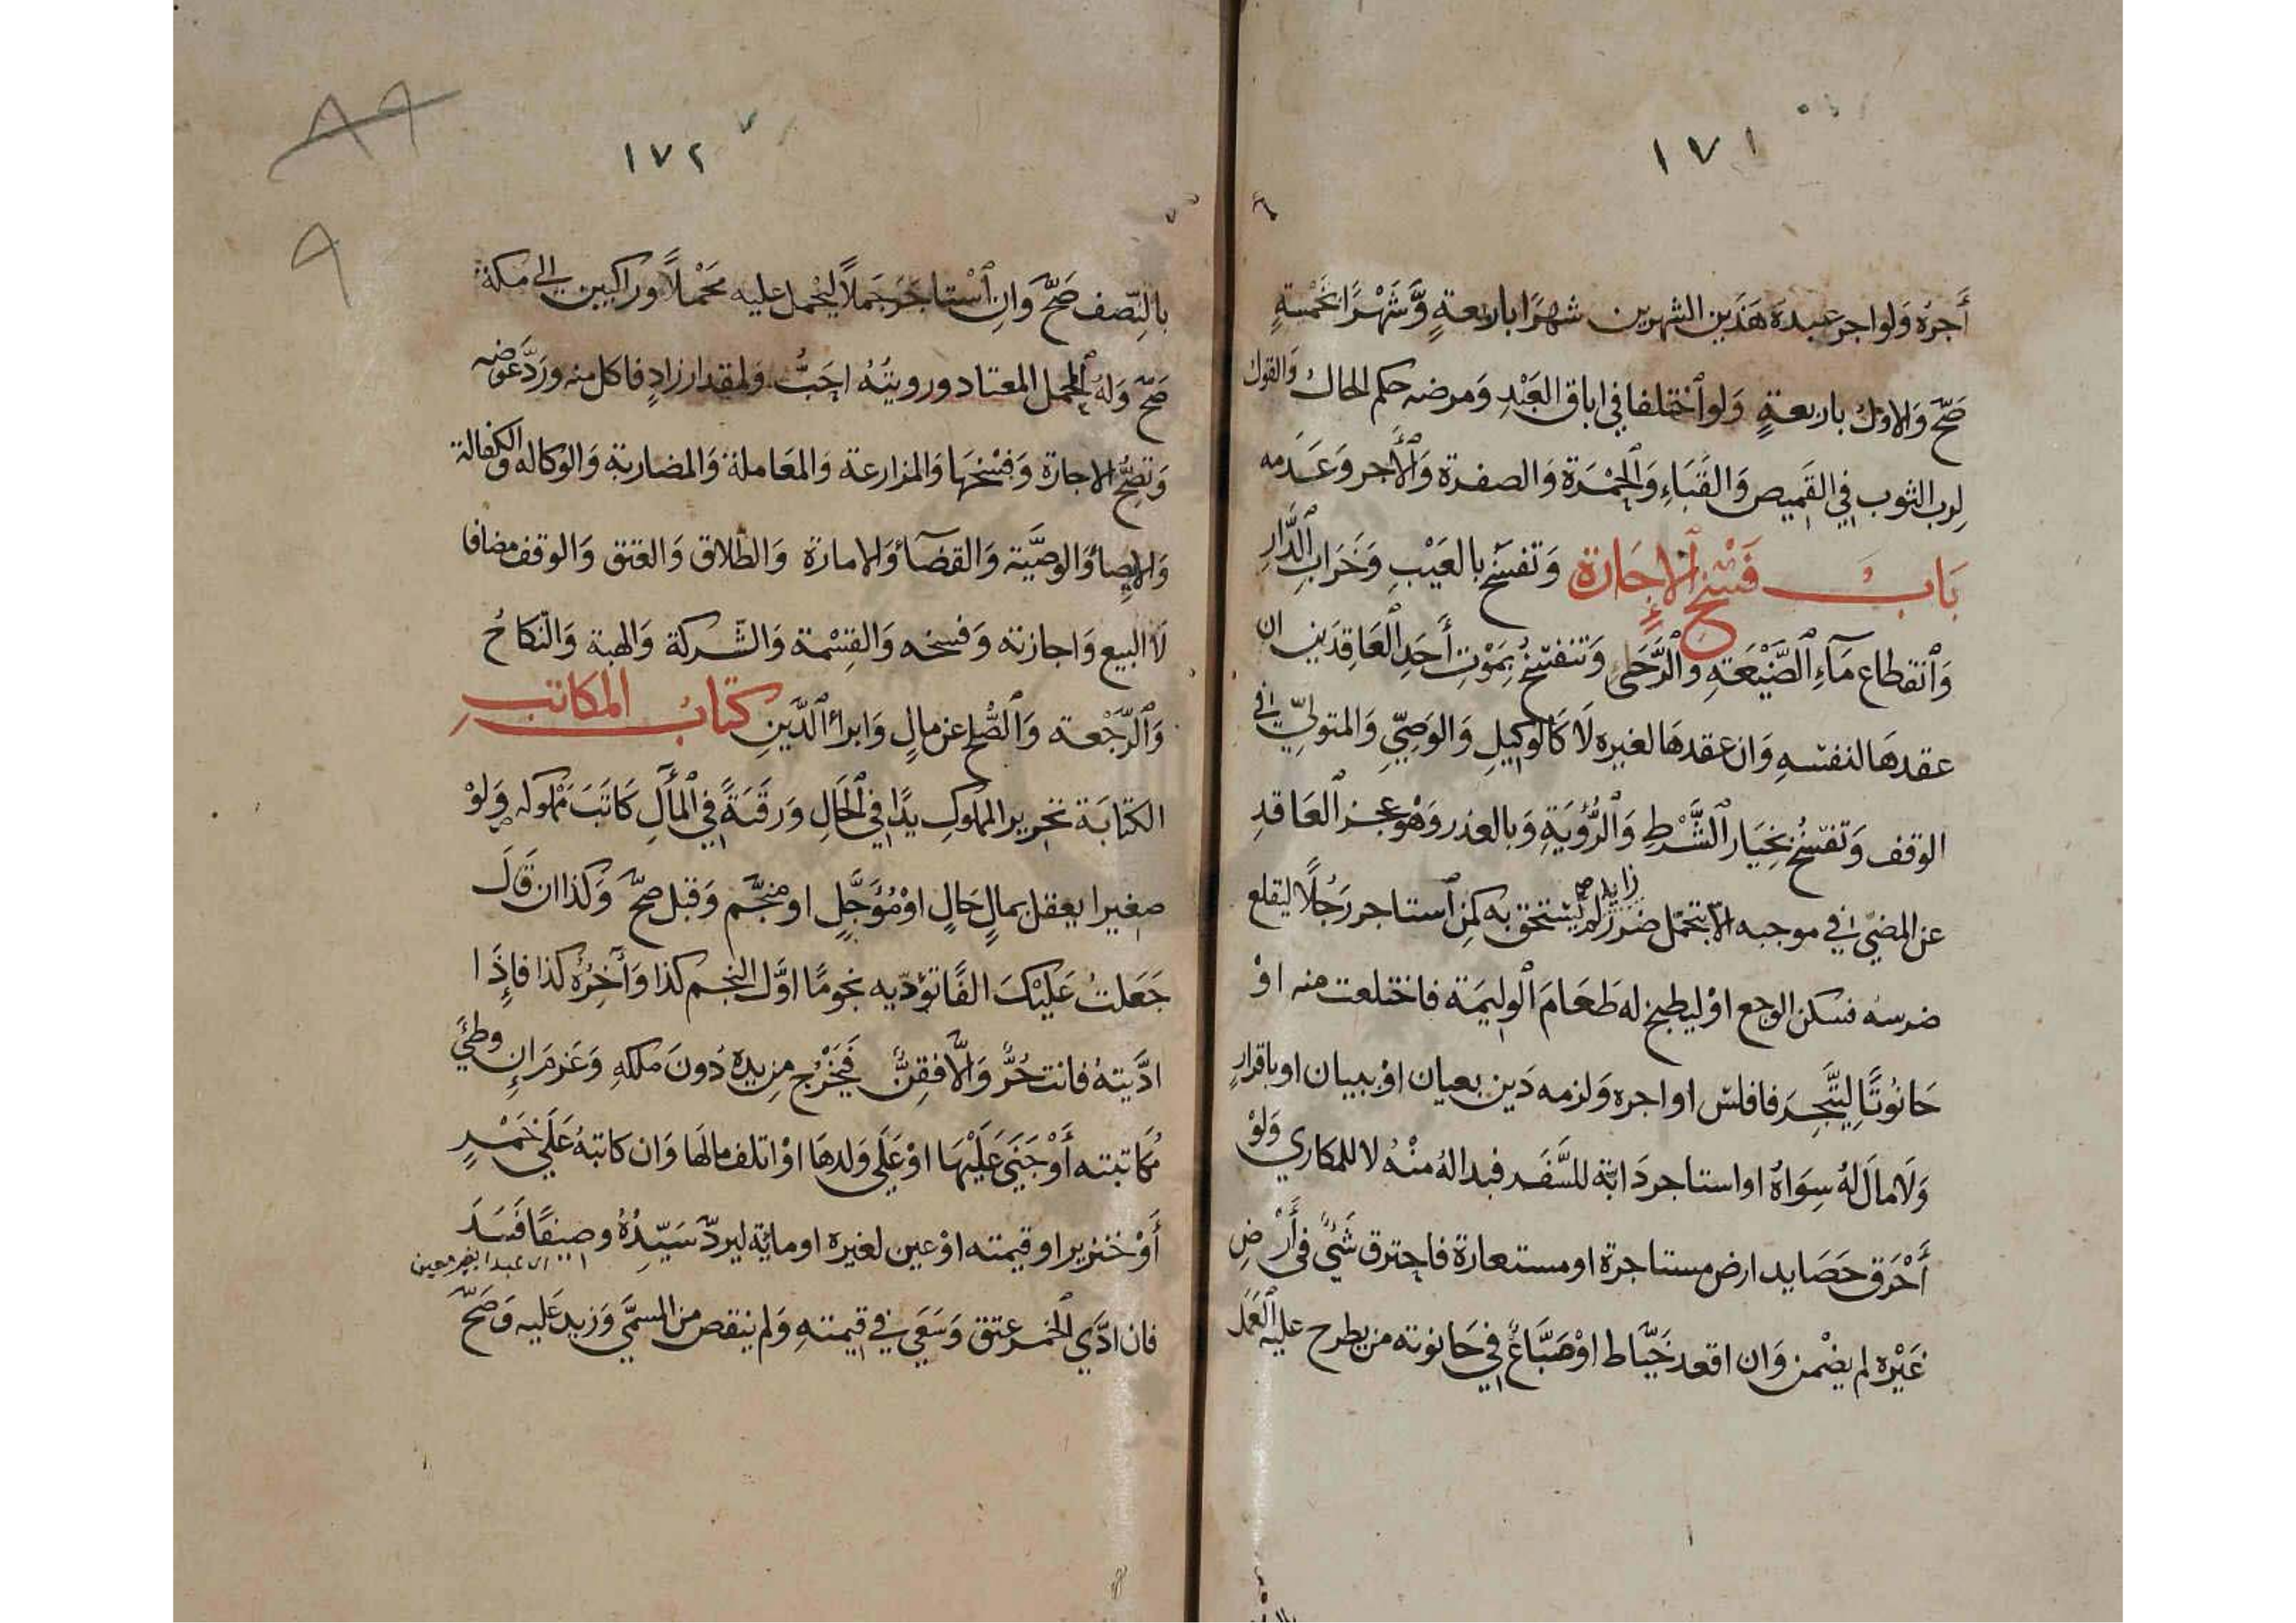 ١٧١
أَجرُه وَلواجر عبده هَذَين الشهرين شهرًا باربعةٍ وَّشَهْرًا بخَمْسةٍ
صَحَّ وَالاول باربعةٍ وَلواخْتلفا في اباق العَبْدِ وَمرضه حكم الحال وَالقول
لرب الثوب في القَميص وَالقَبَاءِ وَالحُمْرَة وَالصفرة وَالأَجر وَعَدَمه
بَاب فَسْخ الإِجَارة وَتفسَخ بالعَيْبِ وَخَرَاب الدَّارِ
وَانقطاع مَآءِ الضَّيْعَةِ وَالرَّحَى وَتنفسخُ بِمَوْتِ أَحَدِ العَاقِدَينِ ان
عقدهَا لنفسهِ وَان عقدهَا لغيره لَا كَالوَكيلِ وَالوَصِيِّ وَالمتولِيّ في
الوقف وَتفسَخُ بخِيَار الشَّرْطِ وَالرُّؤيَةِ وَبالعذر وَهْو عجز العَاقدِ
عن المضيّ في موجبه الّا بتحمّل ضَررٍ زايد لم يستحق به كمن استاجر رَجُلًا ليقلع
ضرسهُ فسكن الوجع اوْ ليطبخ له طَعَامَ الوليمَة فاختلعت منه اوْ
حَانُوتًا لِيَتَّجِرَ فافلس اواجره وَلزمه دَين بعيان اوْببيان اوباقرارٍ
وَلَا مَالَ لهُ سِوَاهُ اواستاجر دَابّة للسَّفَر فبدا لهُ منْهُ لا للمكاري وَلَوْ
أَحْرَق حَصَايد ارض مستاجرة اومستعارة فاحترق شَيْءٌ في أَرْضِ
غَيْرِه لم يضْمن وَان اقعد خَيَّاط اوْصَبَّاغٌ في حَانوته من يطرح عليه العَمَل
١٧٢
٨٩
٩
بالنِّصف صَحَّ وَانِ اسْتاجَرَ جَمَلًا ليَحْمل عليه مَحْمِلًا وراكبين الى مكة
صَحَّ وَلهُ المحمل المعتاد ورويتُهُ احَبُّ وَلمقدار زادٍ فاكل منه ورَدَّ عوَضه
وَتصِحُّ الاجارة وَفسْخهَا وَالمزارعة وَالمعَاملة وَالمضاربة وَالوكاله وَالكفالة
وَالايصَأ وَالوصيَّة وَالقضَآ وَالامارَة وَالطَّلاق وَالعتق وَالوقف مضَافا
لَا البيع وَاجازته وَفسخه وَالقِسْمة وَالشّركة وَالهبة وَالنّكاحُ
وَالرَّجْعة وَالصُّلح عن مالٍ وَابرأ الدَّينِ كتَابُ المكاتب
الكتابَة تحرير المملوكِ يدًا في الحَالِ وَرقَبَةً في المآلِ كَاتَبَ مملوكه وَلوْ
صغيرا يعقل بمالٍ حَالٍ اوْمُؤَجَّلٍ اومنجَّم وَقبل صَحَّ وَكذا ان قَالَ
جَعَلتُ عَليْكَ الفًا تؤدّيه نجومًا اوَّل النجم كذا وَآخِرُهُ كذا فاذَا
ادّيتهُ فانت حُرٌّ وَالَّا فقِنٌّ فيَخْرُج من يده دُونَ مِلكهِ وَغرمَ اِن وَطِئَ
مُكَاتبته أَوْ جَنَى عَلَيْهَا اوْ عَلَى وَلدهَا اوْ اتلف مالهَا وَان كاتبهُ عَلَى خَمْرٍ
أَوْ خنزير اوقيمته اوْعين لغيره اومايّة ليردّ سَيِّدُهُ وصيفًا فَسَدَ
فان ادّى الخمر عتق وَسَعَى في قيمتهِ وَلم ينقص من المسمَّى وَزيد عَليه وَصَحَّ